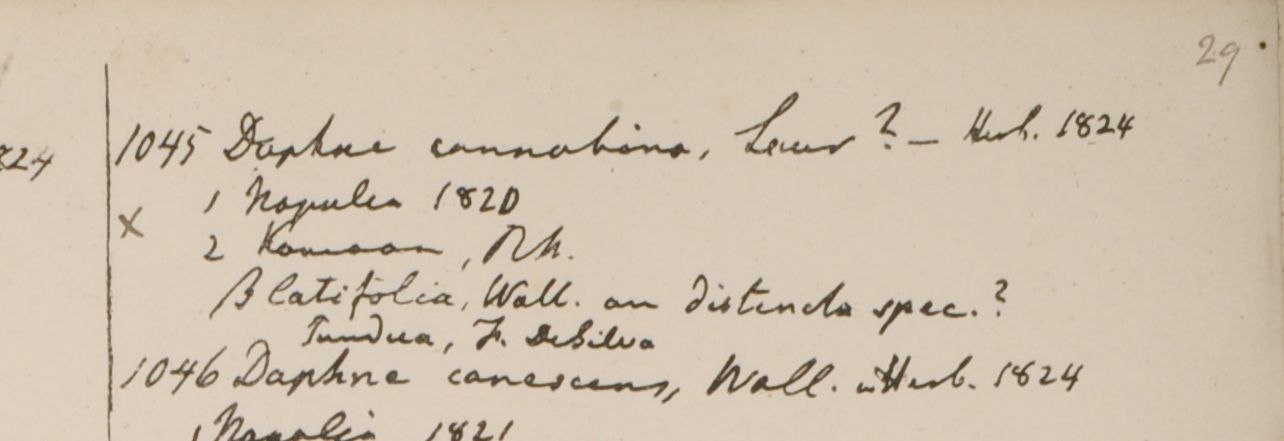 29
824
1045 Daphne cannabina, Lour? – Herb. 1824
1 Napalia 1820
x
2 Kamaon, R.B.
β latifolia, Wall. an distincta spec.?
Tundua, F. DeSilva
1046 Daphne canescens, Wall. in Herb. 1824
1 Napalia 1821